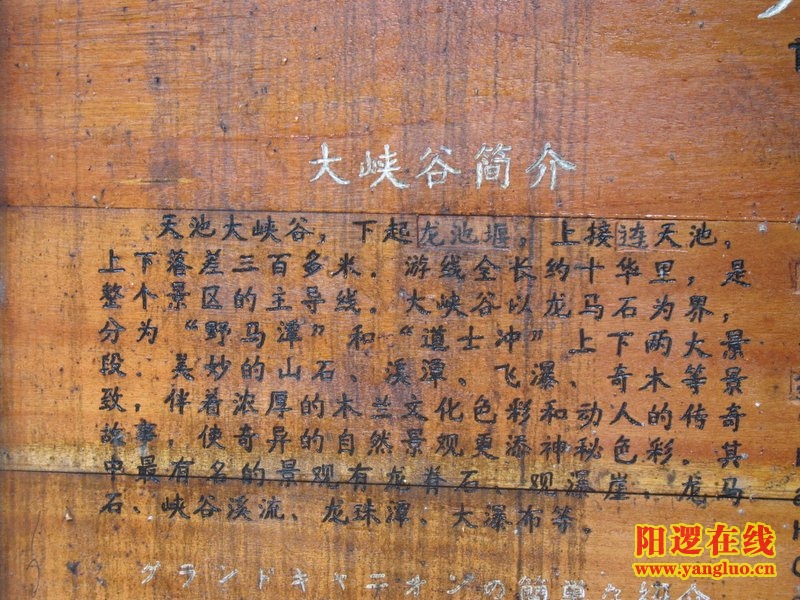 大峡谷简介
天池大峡谷，下起龙池堰，上接连天池，
上下落差三百多米。游线全长约十华里，是
整个景区的主导线。大峡谷以龙马石为界，
分为“野马潭”和“道士冲”上下两大景
段，美妙的山石、溪潭、飞瀑、奇木等景
致，伴着浓厚的木兰文化色彩和动人的传奇
故事，使奇异的自然景观更添神秘色彩。其
中最有名的景观有龙脊石、观瀑崖、龙马
石、峡谷溪流、龙珠潭、大瀑布等。
グランドキャニオンの簡単な紹介
阳逻在线
www.yangluo.cn